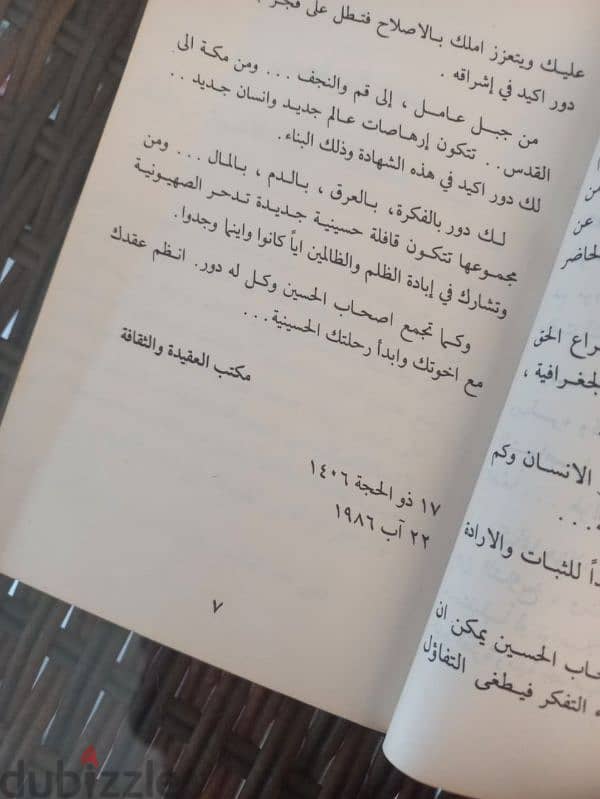 عليك ويتعزز املك بالاصلاح فتطل على فجر
دور اكيد في إشراقه .
من جبل عامل ، إلى قم والنجف ... ومن مكة الى
القدس .. تتكون إرهاصات عالم جديد وانسان جديد ..
لك دور اكيد في هذه الشهادة وذلك البناء.
لك دور بالفكرة، بالعرق ، بالدم ، بالمال ... ومن
مجموعها تتكون قافلة حسينية جديدة تدحر الصهيونية
وتشارك في إبادة الظلم والظالمين اياً كانوا واينما وجدوا.
وكما تجمع اصحاب الحسين وكل له دور. انظم عقدك
مع اخوتك وابدأ رحلتك الحسينية ...
مكتب العقيدة والثقافة
١٧ ذو الحجة ١٤٠٦
٢٢ آب ١٩٨٦
٧
من
عن
الحاضر
الحق
الجغرافية ،
الانسان وكم
...
للثبات والارادة
الحسين يمكن ان
التفكر فيطغى التفاؤل
dubizzle